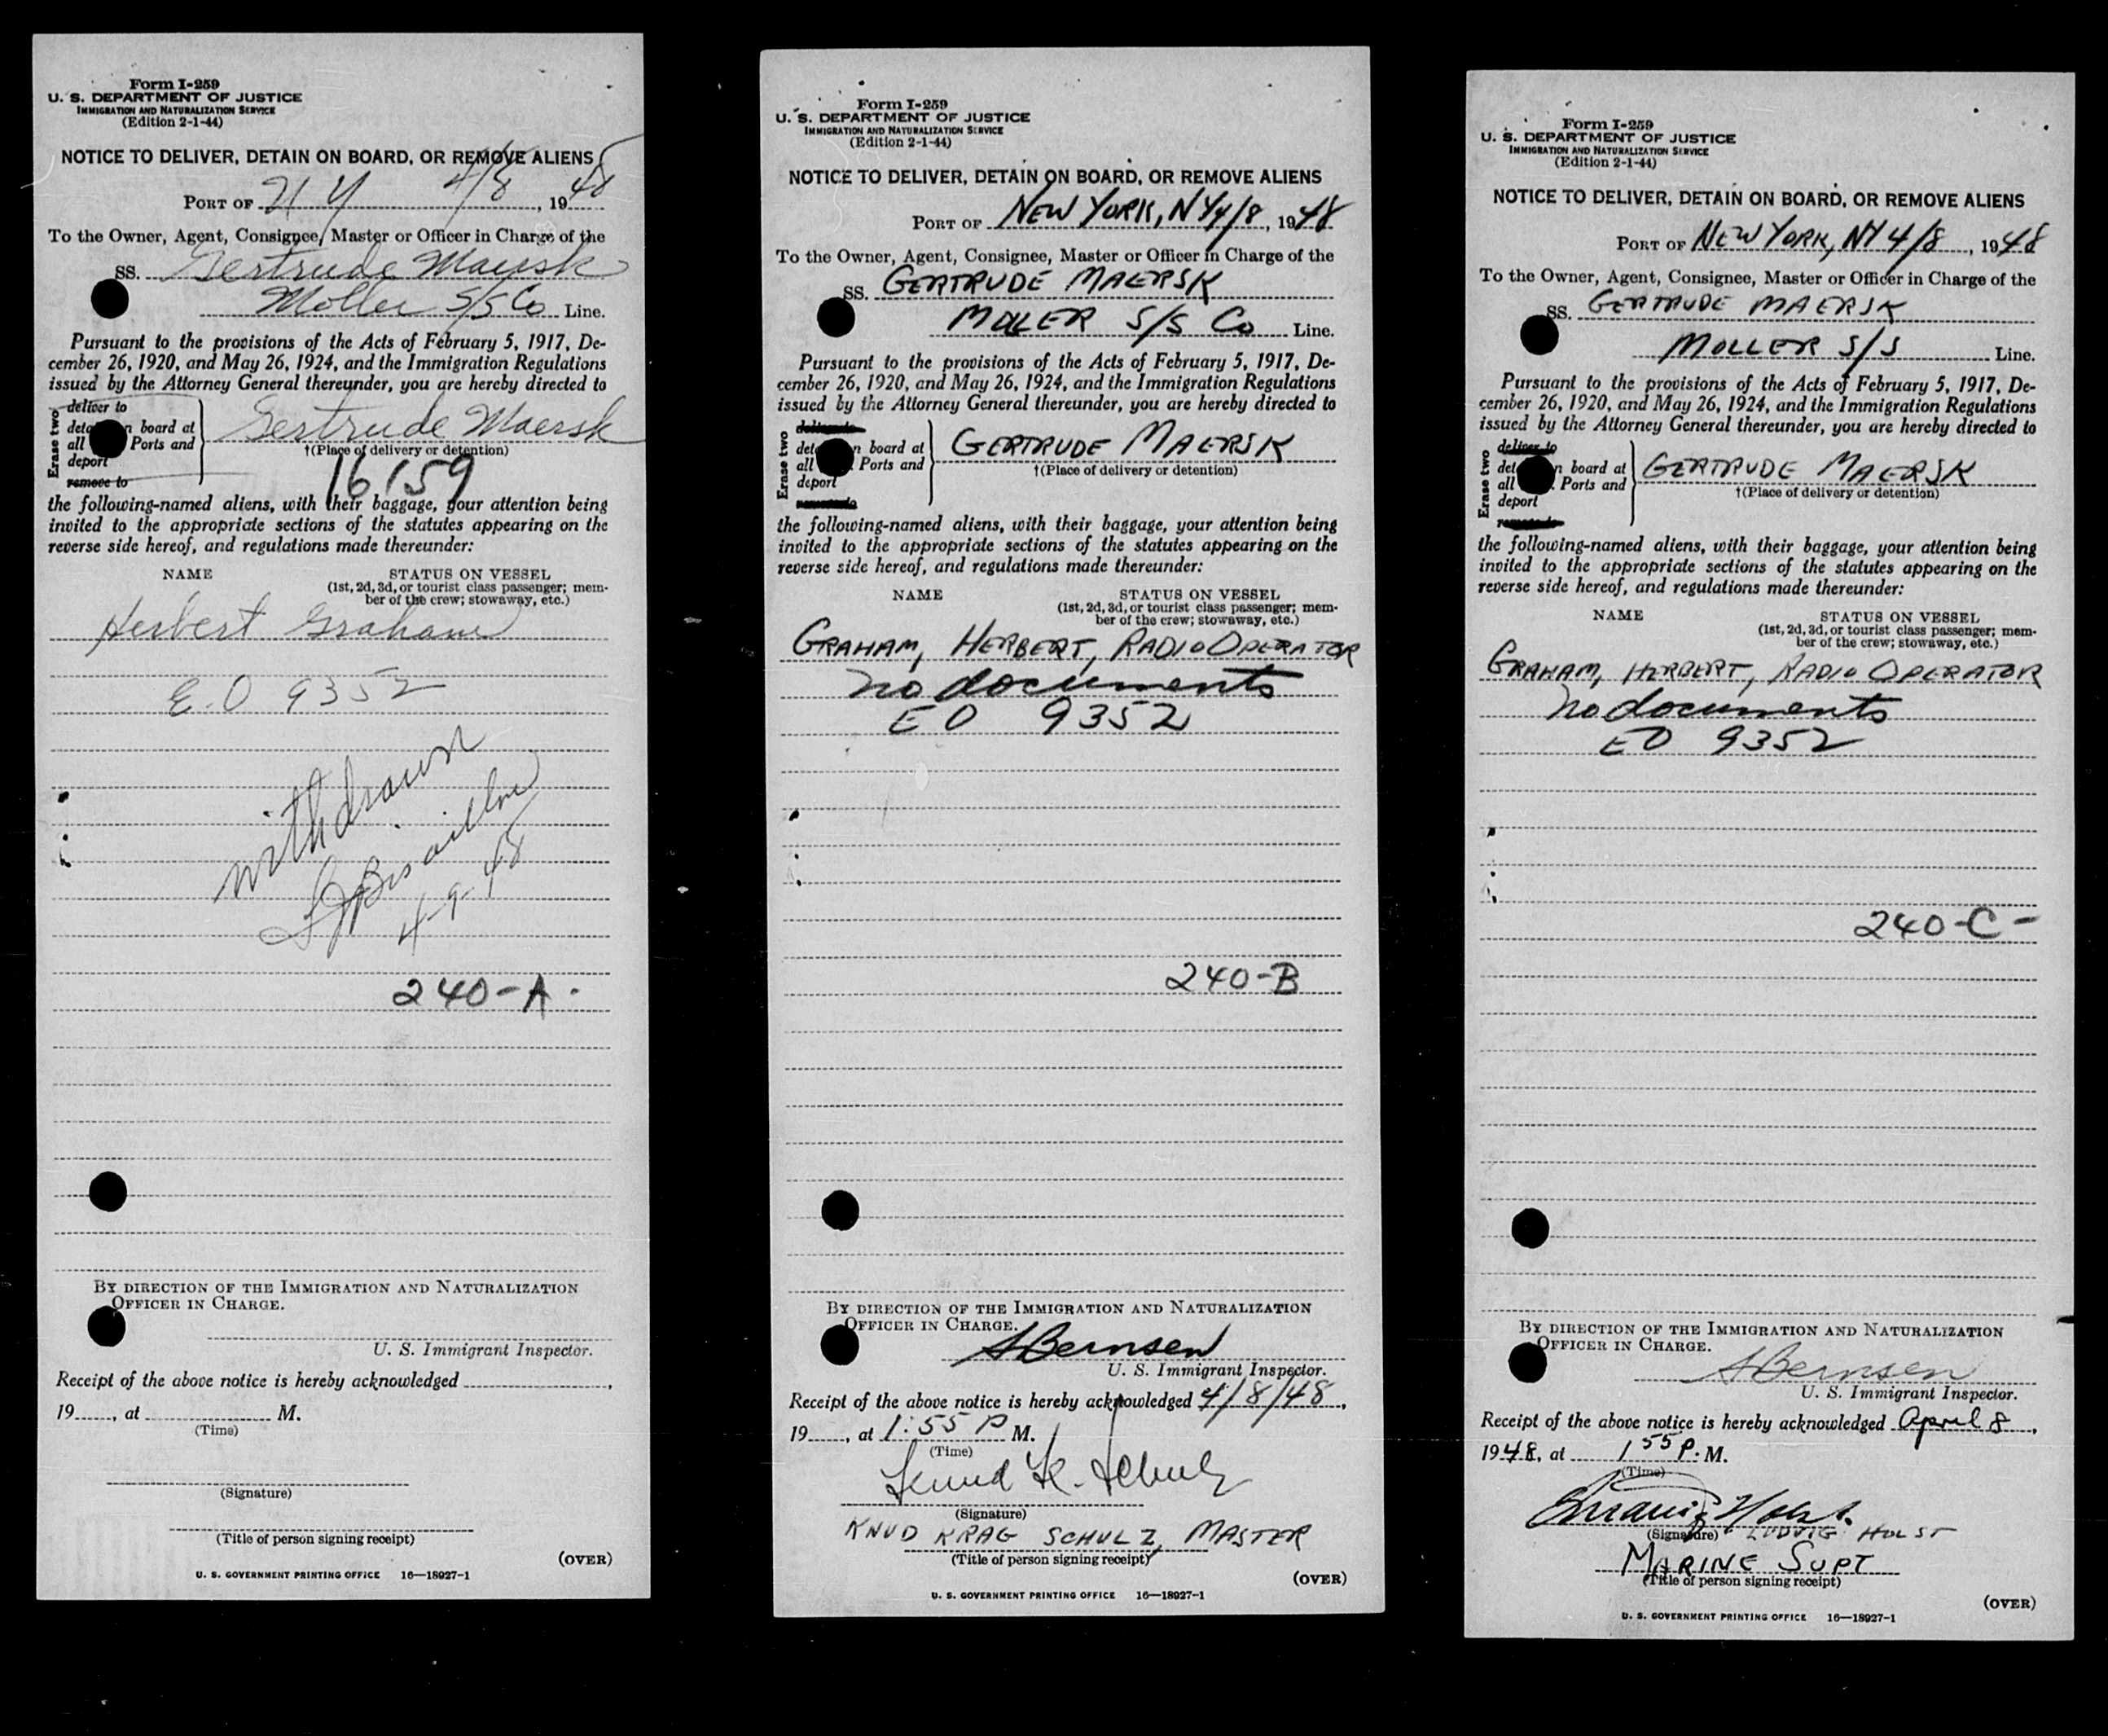 Form I-259
U. S. DEPARTMENT OF JUSTICE
IMMIGRATION AND NATURALIZATION SERVICE
(Edition 2-1-44)
NOTICE TO DELIVER, DETAIN ON BOARD, OR REMOVE ALIENS
PORT OF N Y 4/8, 1948
To the Owner, Agent, Consignee, Master or Officer in Charge of the
SS. Gertrude Maersk
Moller S/S Co Line.
Pursuant to the provisions of the Acts of February 5, 1917, De-
cember 26, 1920, and May 26, 1924, and the Immigration Regulations
issued by the Attorney General thereunder, you are hereby directed to
Erase two
deliver to
n board at
all Ports and
deport
remove to
Gertrude Maersk
†(Place of delivery or detention)
16159
the following-named aliens, with their baggage, your attention being
invited to the appropriate sections of the statutes appearing on the
reverse side hereof, and regulations made thereunder:
NAME STATUS ON VESSEL
(1st, 2d, 3d, or tourist class passenger; mem-
ber of the crew; stowaway, etc.)
Herbert Graham
E.O 9352
withdrawn
4-9-48
240-A
BY DIRECTION OF THE IMMIGRATION AND NATURALIZATION
OFFICER IN CHARGE.
U. S. Immigrant Inspector.
Receipt of the above notice is hereby acknowledged ,
19 , at M.
(Time)
(Signature)
(Title of person signing receipt)
(OVER)
U. S. GOVERNMENT PRINTING OFFICE 16—18927-1
Form I-259
U. S. DEPARTMENT OF JUSTICE
IMMIGRATION AND NATURALIZATION SERVICE
(Edition 2-1-44)
NOTICE TO DELIVER, DETAIN ON BOARD, OR REMOVE ALIENS
PORT OF NEW YORK, NY 4/8, 1948
To the Owner, Agent, Consignee, Master or Officer in Charge of the
SS. GERTRUDE MAERSK
MOLLER S/S Co Line.
Pursuant to the provisions of the Acts of February 5, 1917, De-
cember 26, 1920, and May 26, 1924, and the Immigration Regulations
issued by the Attorney General thereunder, you are hereby directed to
Erase two
n board at
all Ports and
deport
GERTRUDE MAERSK
†(Place of delivery or detention)
the following-named aliens, with their baggage, your attention being
invited to the appropriate sections of the statutes appearing on the
reverse side hereof, and regulations made thereunder:
NAME STATUS ON VESSEL
(1st, 2d, 3d, or tourist class passenger; mem-
ber of the crew; stowaway, etc.)
GRAHAM, HERBERT, RADIO OPERATOR
no documents
EO 9352
240-B
BY DIRECTION OF THE IMMIGRATION AND NATURALIZATION
OFFICER IN CHARGE.
SBernsen
U. S. Immigrant Inspector.
Receipt of the above notice is hereby acknowledged 4/8/48,
19 , at 1:55 P M.
(Time)
Knud K. Schulz
(Signature)
KNUD KRAG SCHULZ, MASTER
(Title of person signing receipt)
(OVER)
U. S. GOVERNMENT PRINTING OFFICE 16—18927-1
Form I-259
U. S. DEPARTMENT OF JUSTICE
IMMIGRATION AND NATURALIZATION SERVICE
(Edition 2-1-44)
NOTICE TO DELIVER, DETAIN ON BOARD, OR REMOVE ALIENS
PORT OF NEW YORK, NY 4/8, 1948
To the Owner, Agent, Consignee, Master or Officer in Charge of the
SS. GERTRUDE MAERSK
MOLLER S/S Line.
Pursuant to the provisions of the Acts of February 5, 1917, De-
cember 26, 1920, and May 26, 1924, and the Immigration Regulations
issued by the Attorney General thereunder, you are hereby directed to
Erase two
deliver to
n board at
all Ports and
deport
GERTRUDE MAERSK
†(Place of delivery or detention)
the following-named aliens, with their baggage, your attention being
invited to the appropriate sections of the statutes appearing on the
reverse side hereof, and regulations made thereunder:
NAME STATUS ON VESSEL
(1st, 2d, 3d, or tourist class passenger; mem-
ber of the crew; stowaway, etc.)
GRAHAM, HERBERT, RADIO OPERATOR
no documents
EO 9352
240-C-
BY DIRECTION OF THE IMMIGRATION AND NATURALIZATION
OFFICER IN CHARGE.
SBernsen
U. S. Immigrant Inspector.
Receipt of the above notice is hereby acknowledged April 8,
1948, at 1 55 P. M.
(Time)
(Signature) LUDVIG HOLST
MARINE SUPT
(Title of person signing receipt)
(OVER)
U. S. GOVERNMENT PRINTING OFFICE 16—18927-1